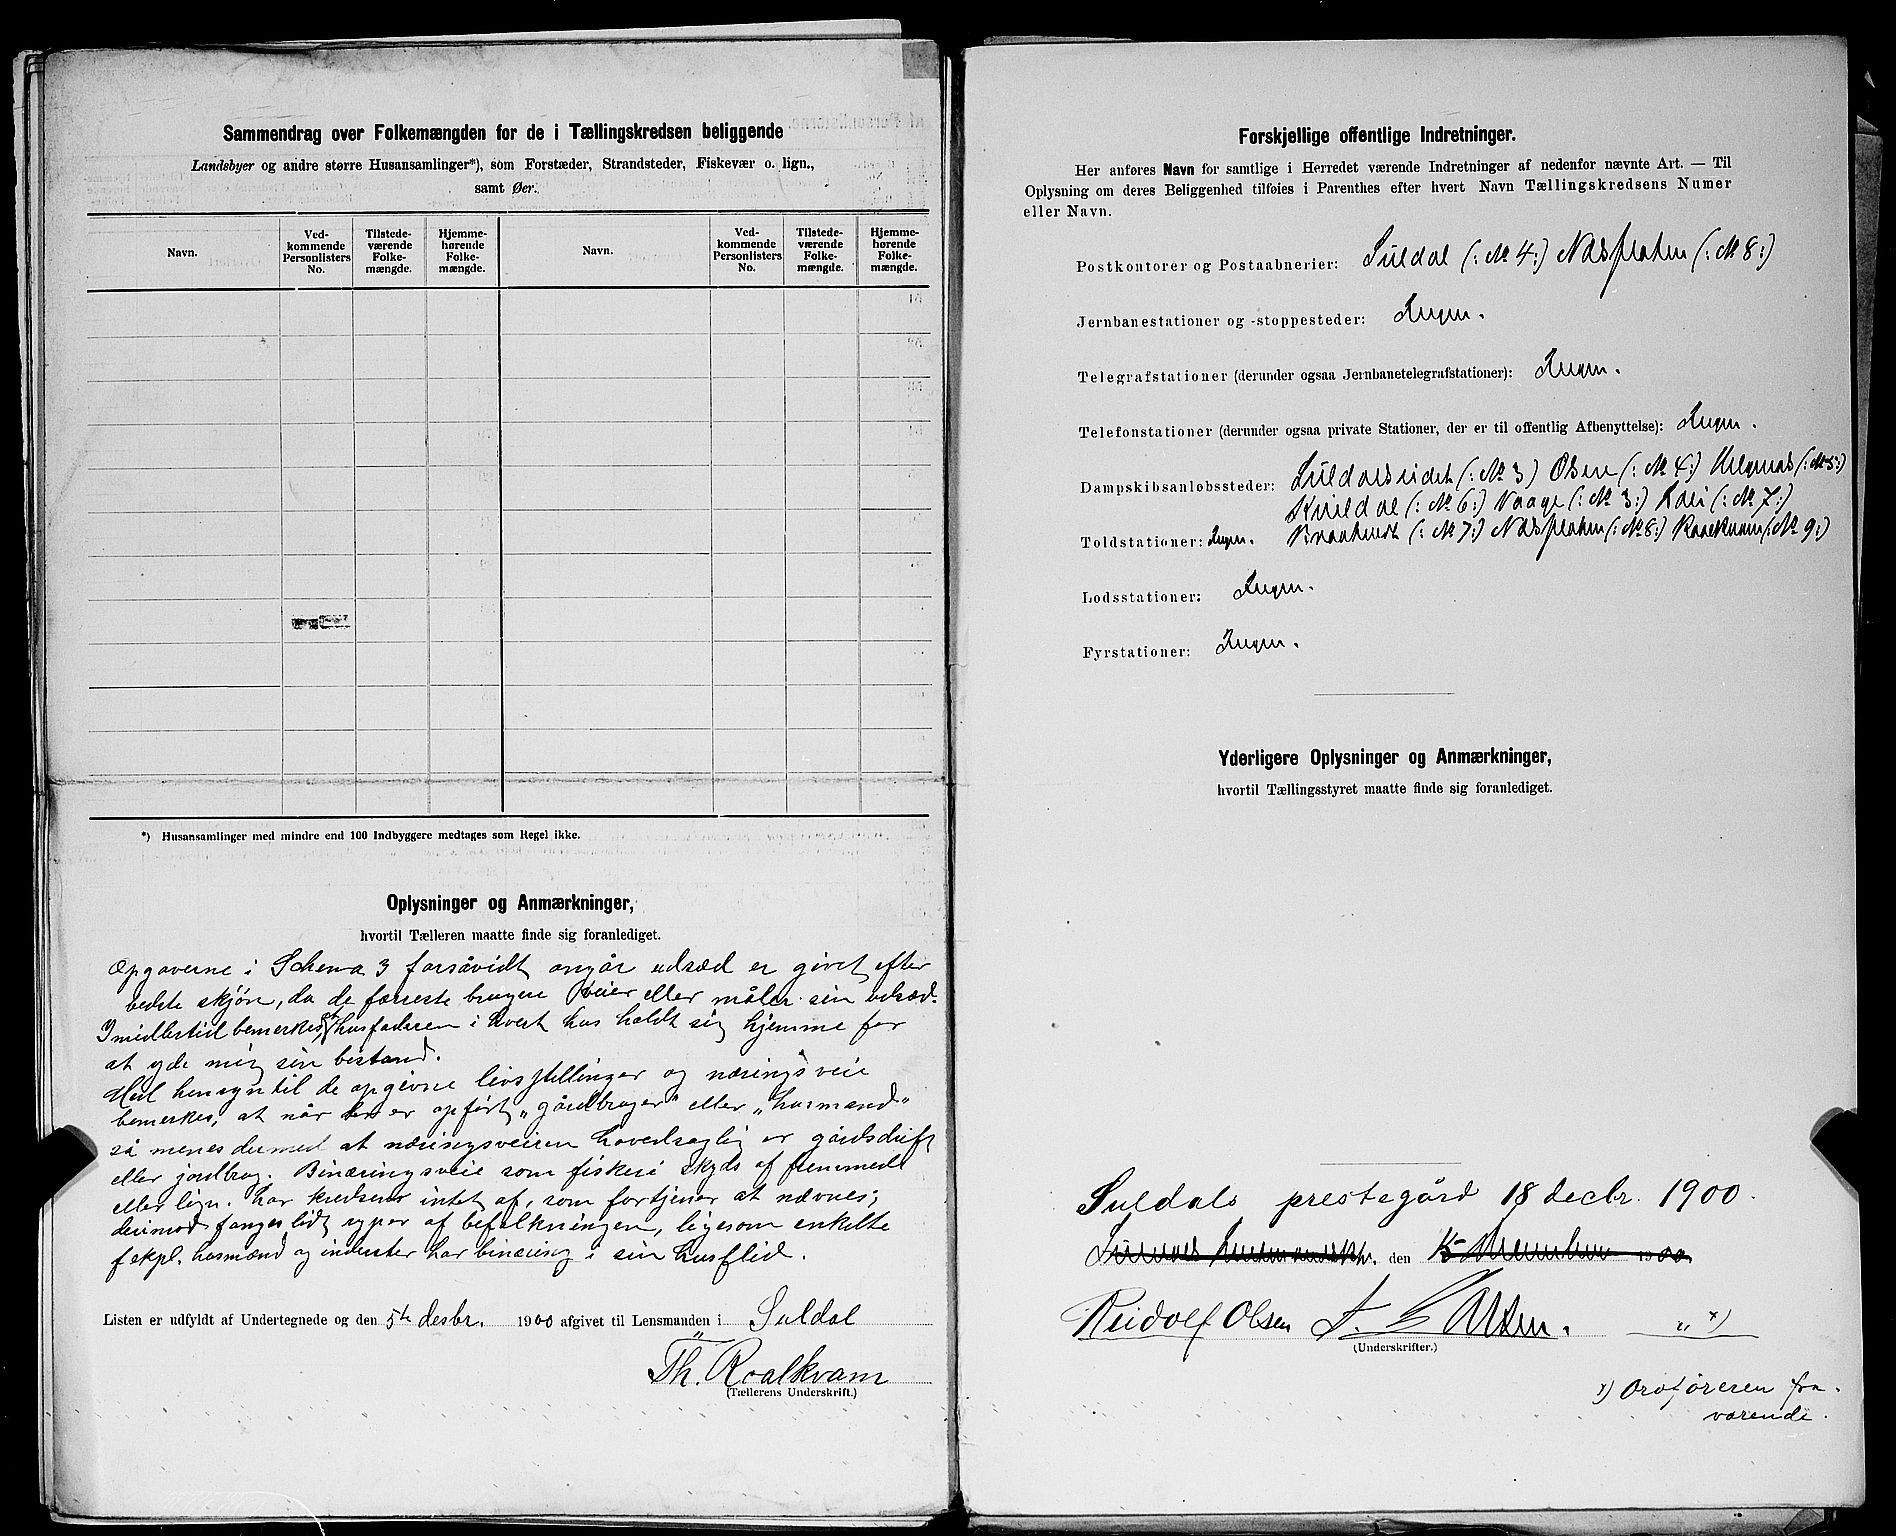 Sammendrag over Folkemængden for de i Tællingskredsen beliggende
Landsbyer og andre større Husansamlinger*), som Forstæder, Strandsteder, Fiskevær o. lign.,
samt Øer.
Navn. Ved-kommende Personlisters No. Tilstede-værende Folke-mængde. Hjemme-hørende Folke-mængde. Navn. Ved-kommende Personlisters No. Tilstede-værende Folke-mængde. Hjemme-hørende Folke-mængde.
*) Husansamlinger med mindre end 100 Indbyggere medtages som Regel ikke.
Oplysninger og Anmærkninger,
hvortil Tælleren maatte finde sig foranlediget.
Opgaverne i Schema 3 forsåvidt angår udsæd er givet efter
bedste skjøn, da de færreste brugere veier eller måler sin udsæd.
Imidlertid bemerkes, at husfaderen i hvert hus holdt sig hjemme for
at yde mig sin bistand.
Med hensyn til de opgivne livsstillinger og næringsveie
bemerkes, at når der er opført „gårdbruger" eller „husmand"
så menes dermed at næringsveien hovedsaglig er gårdsdrift
eller jordbrug. Binæringsveie som fiskeri skyds af fremmede
eller lign. har kredsens intet af, som fortjener at nævnes;
derimod fanges lidt ryper af befolkningen, ligesom enkelte
f. expl. husmænd og inderster har binæring i sin husflid.
Listen er udfyldt af Undertegnede og den 5te desbr. 1900 afgivet til Lensmanden i Suldal
Th. Roalkvam
(Tællerens Underskrift.)
Forskjellige offentlige Indretninger.
Her anføres Navn for samtlige i Herredet værende Indretninger af nedenfor nævnte Art. — Til
Oplysning om deres Beliggenhed tilføies i Parenthes efter hvert Navn Tællingskredsens Numer
eller Navn.
Postkontorer og Postaabnerier: Suldal (: № 4:) Næsflaten (: № 8:)
Jernbanestationer og -stoppesteder: Ingen.
Telegrafstationer (derunder ogsaa Jernbanetelegrafstationer): Ingen.
Telefonstationer (derunder ogsaa private Stationer, der er til offentlig Afbenyttelse): Ingen.
Dampskibsanløbssteder: Suldalseidet (: № 3) Olsen (: № 4:) Helgenæs (: № 5:)
Kvildal (: № 6:) Vaage (: № 3:) Kali (: № 7:)
Toldstationer: Ingen. Braatveit (: № 7:) Næsflaten (: № 8:) Roaldkvam (: № 9:)
Lodsstationer: Ingen.
Fyrstationer: Ingen.
Yderligere Oplysninger og Anmærkninger,
hvortil Tællingsstyret maatte finde sig foranlediget.
Suldals prestegård 18 decbr. 1900.
den 15 1900.
Reidolf Olsen „ x)
(Underskrifter.)
x) Ordføreren fra-
værende.